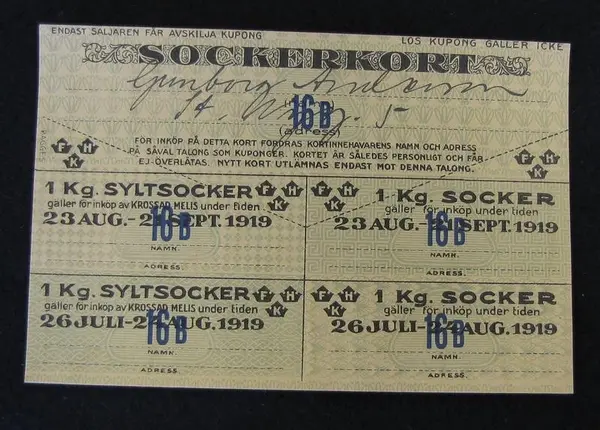 ENDAST SÄLJAREN FÅR AVSKILJA KUPONG
LÖS KUPONG GÄLLER ICKE
SOCKERKORT
Gunborg Andersson
16 B
5
(adress)
FÖR INKÖP PÅ DETTA KORT FORDRAS KORTINNEHAVARENS NAMN OCH ADRESS
PÅ SÅVÄL TALONG SOM KUPONGER. KORTET ÄR SÅLEDES PERSONLIGT OCH FÅR
EJ ÖVERLÅTAS. NYTT KORT UTLÄMNAS ENDAST MOT DENNA TALONG.
F H K
F H K
1 Kg. SYLTSOCKER
F H K
gäller för inköp av KROSSAD MELIS under tiden
23 AUG.-21 SEPT. 1919
16 B
NAMN.
ADRESS.
F H K
1 Kg. SOCKER
gäller för inköp under tiden
23 AUG.-21 SEPT. 1919
16 B
NAMN.
ADRESS.
1 Kg. SYLTSOCKER
F H K
gäller för inköp av KROSSAD MELIS under tiden
26 JULI-24 AUG. 1919
16 B
NAMN.
ADRESS.
F H K
1 Kg. SOCKER
gäller för inköp under tiden
26 JULI-24 AUG. 1919
16 B
NAMN.
ADRESS.